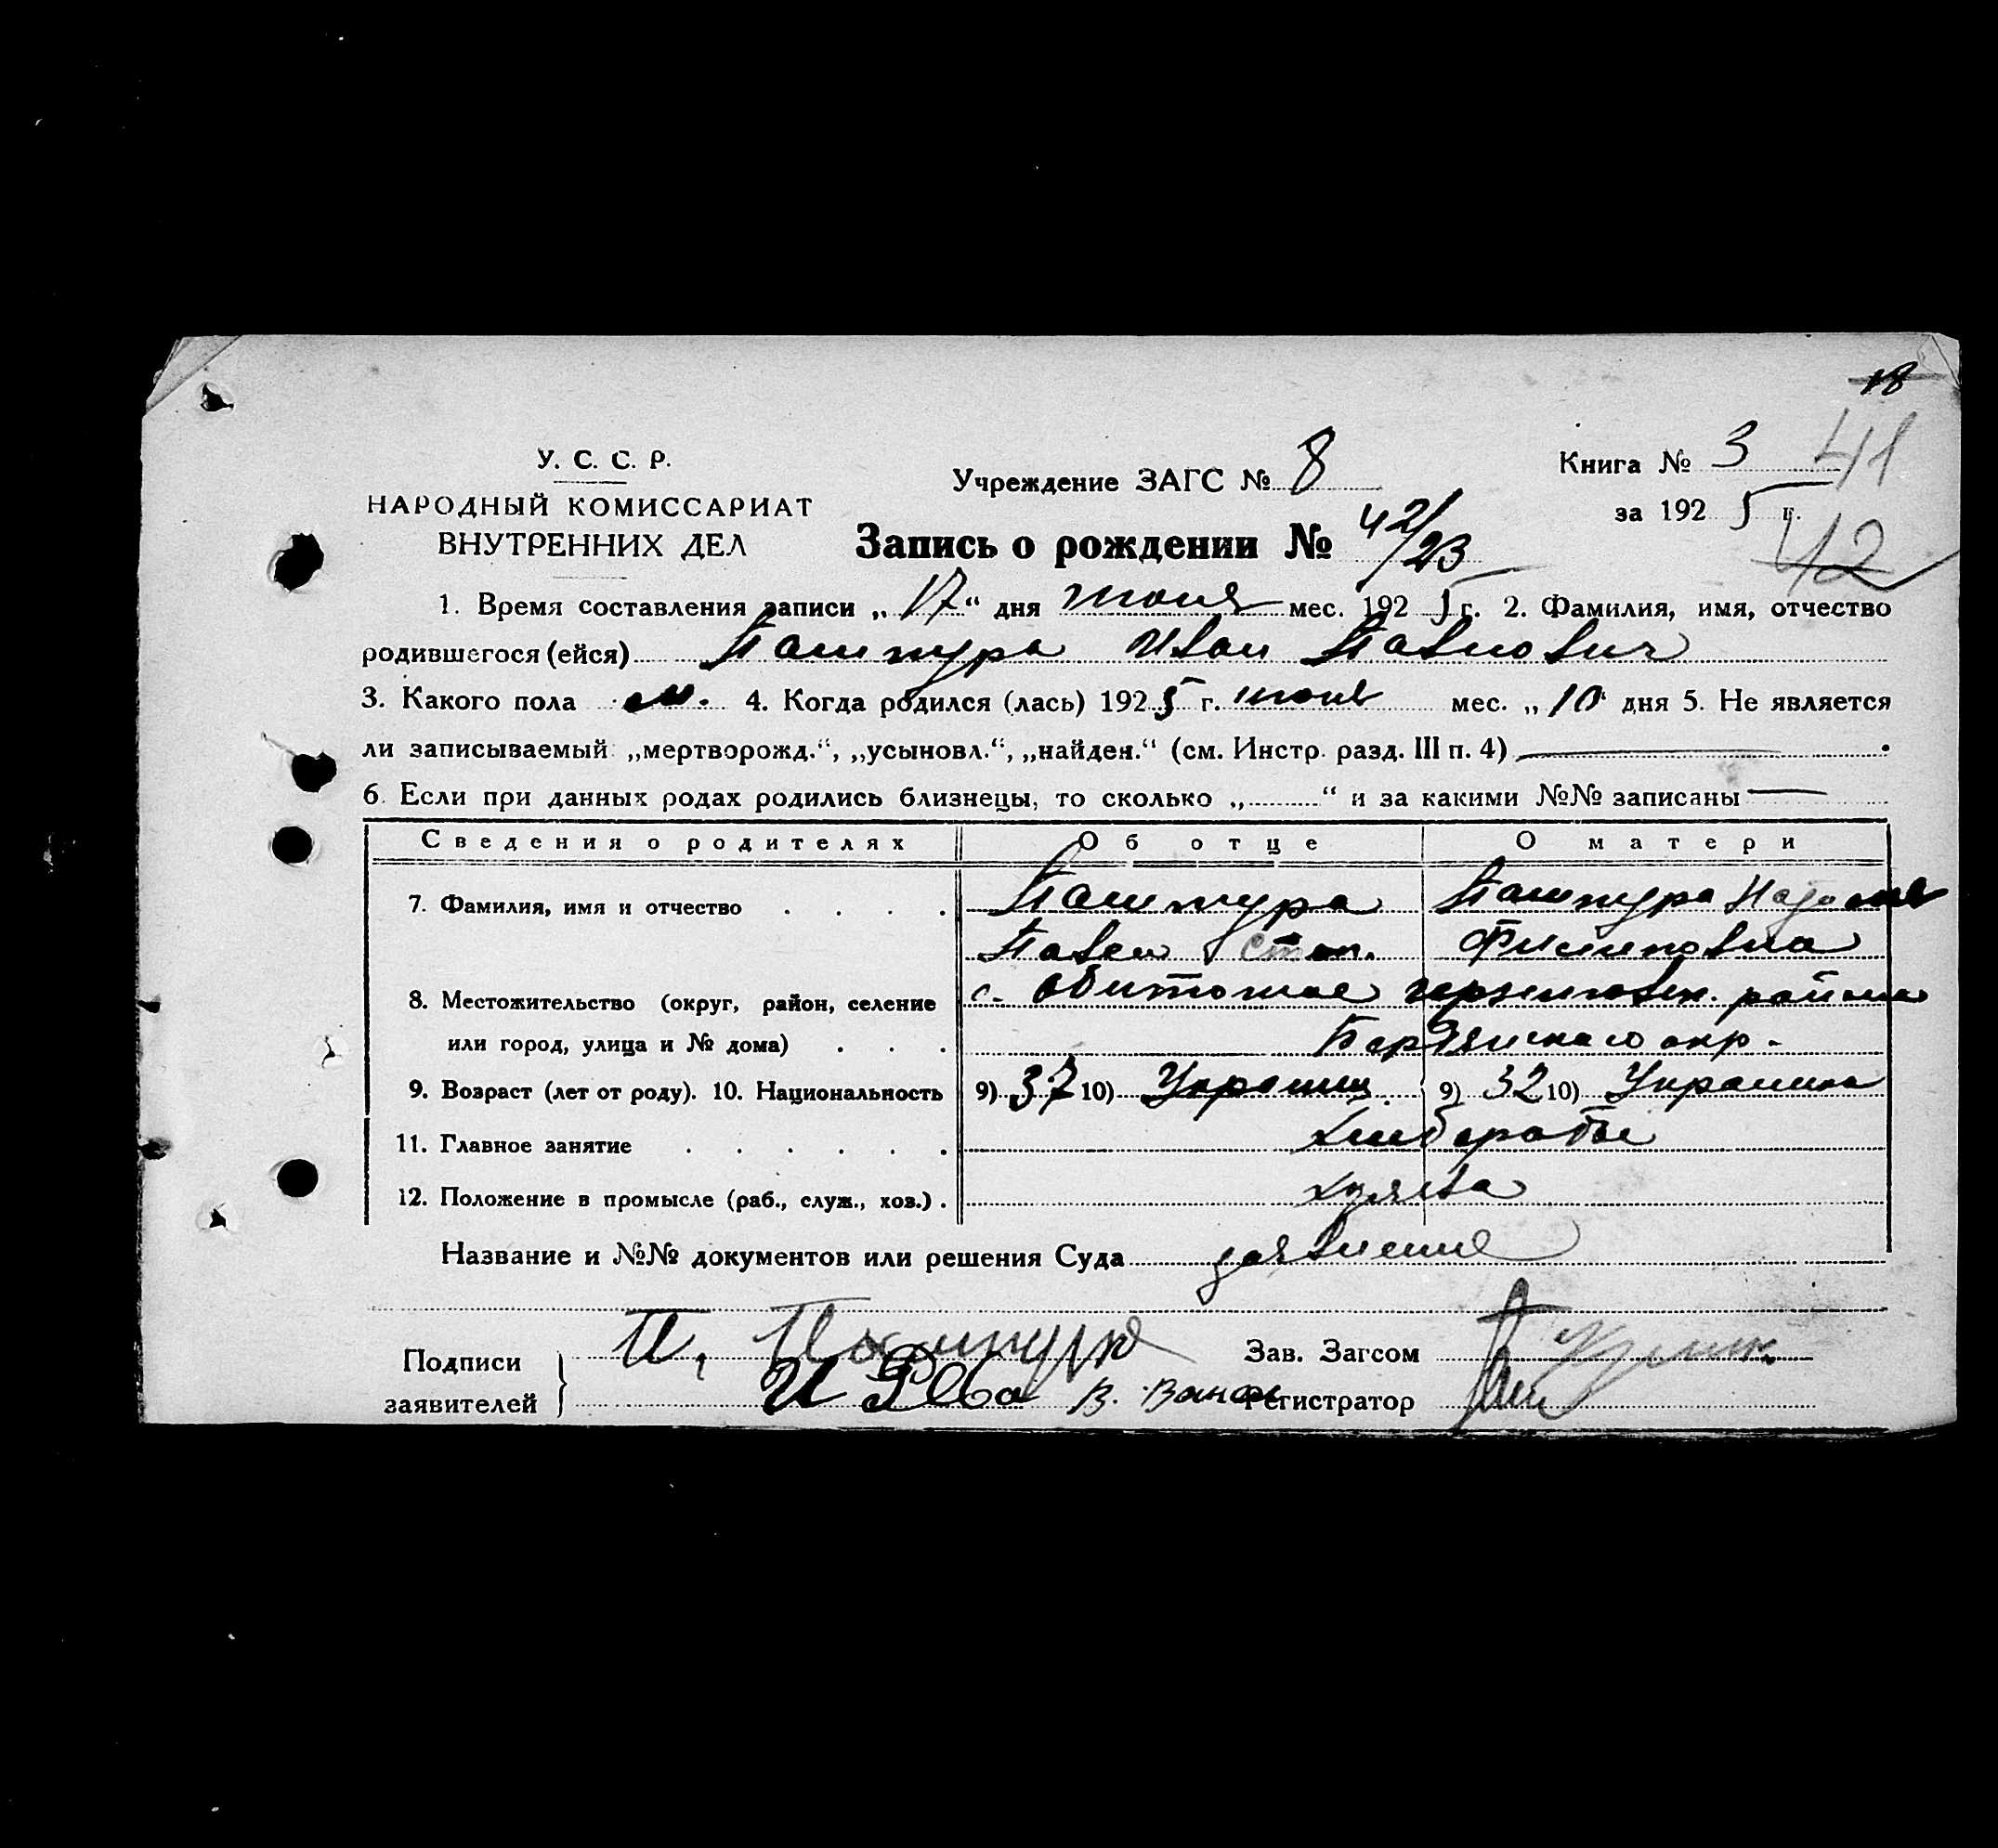 18
У. С. С. Р.
НАРОДНЫЙ КОМИССАРИАТ
ВНУТРЕННИХ ДЕЛ
Учреждение ЗАГС № 8
Книга № 3 41
за 1925 г.
42
Запись о рождении № 42/23
1. Время составления записи „17“ дня июня мес. 1925 г. 2. Фамилия, имя, отчество
родившегося (ейся) Пашпура Иван Павлович
3. Какого пола м. 4. Когда родился (лась) 1925 г. июня мес. „10 дня 5. Не является
ли записываемый „мертворожд.“, „усыновл.“, „найден.“ (см. Инстр. разд. III п. 4)
6. Если при данных родах родились близнецы, то сколько „ “ и за какими №№ записаны
Сведения о родителях Об отце О матери
7. Фамилия, имя и отчество Пашпура Пашпура
Павел Степ. Филиповна
8. Местожительство (округ, район, селение с. Обиточное района
или город, улица и № дома) окр.
9. Возраст (лет от роду). 10. Национальность 9) 37 10) Украинец 9) 32 10) Украинка
11. Главное занятие
12. Положение в промысле (раб., служ., хоз.) хозяева
Название и №№ документов или решения Суда заявление
Подписи П. Пашпура Зав. Загсом
заявителей Регистратор